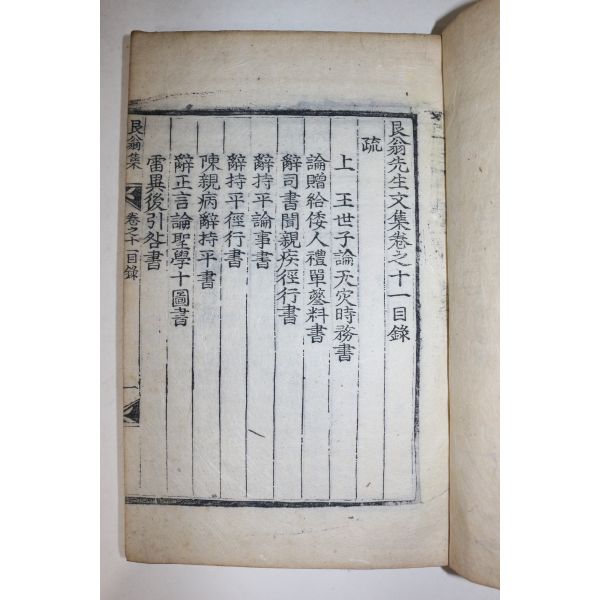 艮翁先生文集卷之十一目錄
疏
上 王世子論天灾時務書
論贈給倭人禮單蔘料書
辭司書聞親疾徑行書
辭持平論事書
辭持平徑行書
陳親病辭持平書
辭正言論聖學十圖書
雷異後引咎書
艮翁集 卷之十一目錄 一